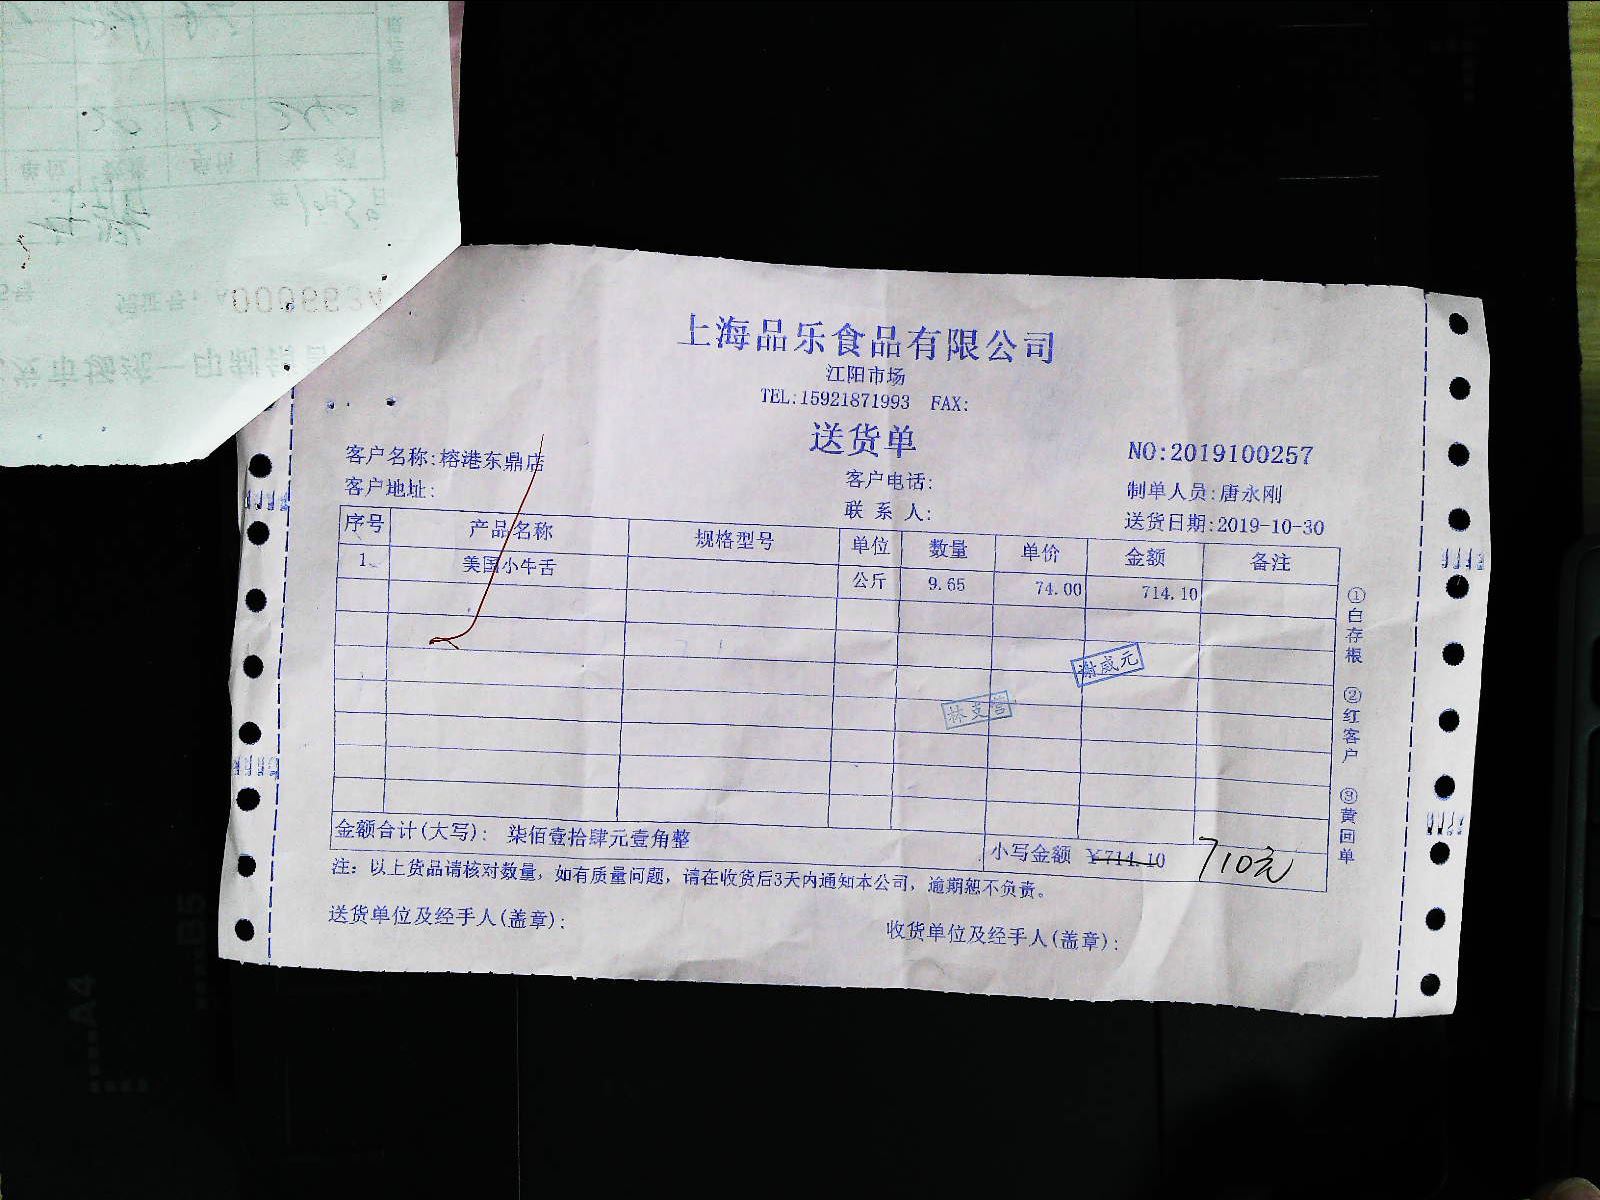 上海品乐食品有限公司
江阳市场
TEL:15921871993 FAX:
送货单
NO:2019100257
客户名称:榕港东鼎店
客户电话:
制单人员:唐永刚
客户地址:
联系人:
送货日期:2019-10-30
序号 产品名称 规格型号 单位 数量 单价 金额 备注
1 美国小牛舌 公斤 9.65 74.00 714.10
谢威元
林支营
金额合计(大写): 柒佰壹拾肆元壹角整
小写金额 ¥714.10 710元
注: 以上货品请核对数量, 如有质量问题, 请在收货后3天内通知本公司, 逾期恕不负责。
送货单位及经手人(盖章):
收货单位及经手人(盖章):
①白存根 ②红客户 ③黄回单